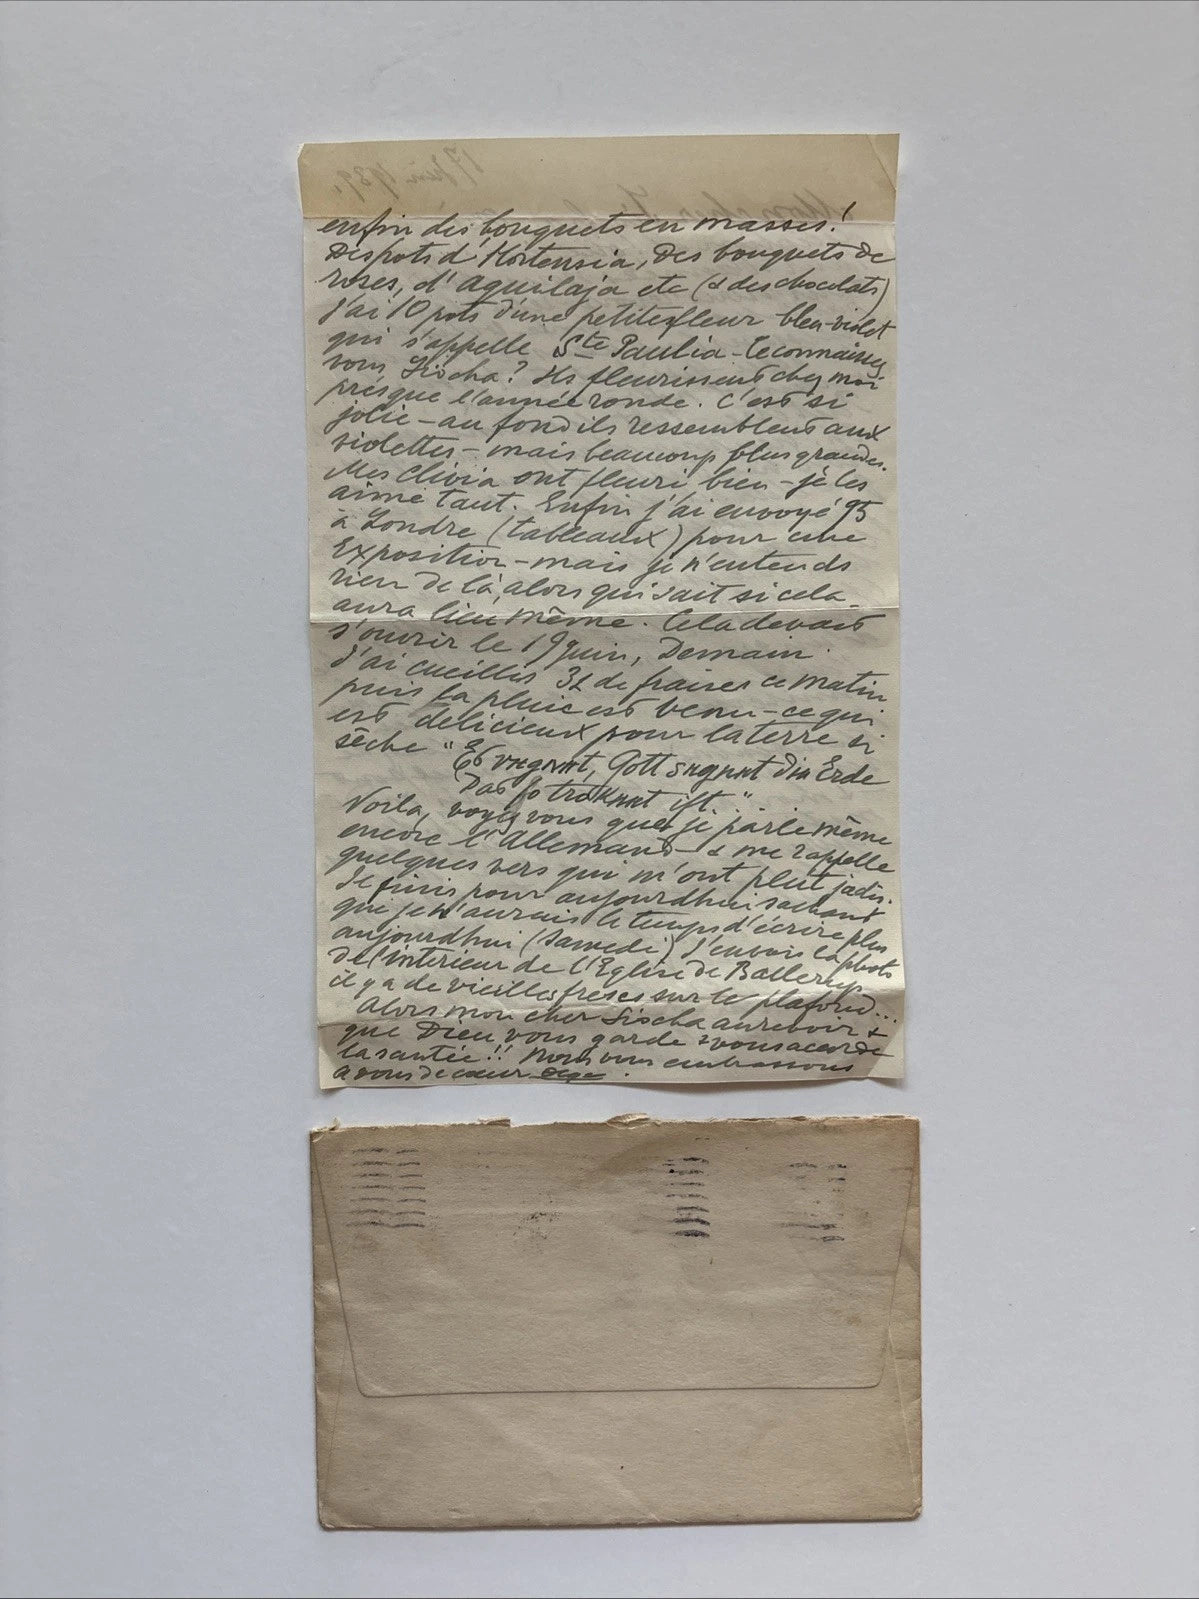 17 Juin 1939.
Mon cher
enfin des bouquets en masses!
Des pots d'Hortensia, des bouquets de
roses, d'aquilaja etc (& des chocolats)
J'ai 10 pots d'une petite fleur bleu-violet
qui s'appelle Ste Paulia - le connaissez
vous Lischa? Ils fleurissent chez moi
présque l'année ronde. C'est si
jolie - au fond ils ressemblent aux
violettes - mais beaucoup plus grandes.
Mes Clivia ont fleuri bien - je les
aime tant. Enfin j'ai envoyé 95
à Londre (tableaux) pour une
Exposition - mais je n'entends
rien de là, alors qui sait si cela
aura lieu même. Cela devait
s'ouvrir le 19 Juin, Demain.
J'ai cueilles 32 de fraises ce matin
puis la pluie est venu - ce qui
est délicieux pour la terre si
sêche "Es regnet, Gott segnet die Erde
Das so troknet ist."
Voila, voyez vous que je parle même
encore l'Allemand - & me rappelle
quelques vers qui m'ont plut jadis.
Je finis pour aujourdhui sachant
que je n'aurais le temps d'écrire plus
aujourdhui (Samedi) J'envois la photo
de l'interieur de l'Eglise de Ballerup
il y a de vieilles freses sur le plafond...
Alors mon cher Lischa aurevoir &
que Dieu vous garde & vous accorde
la santée!! Nous vous embrassons
a vous de cœur Olga.